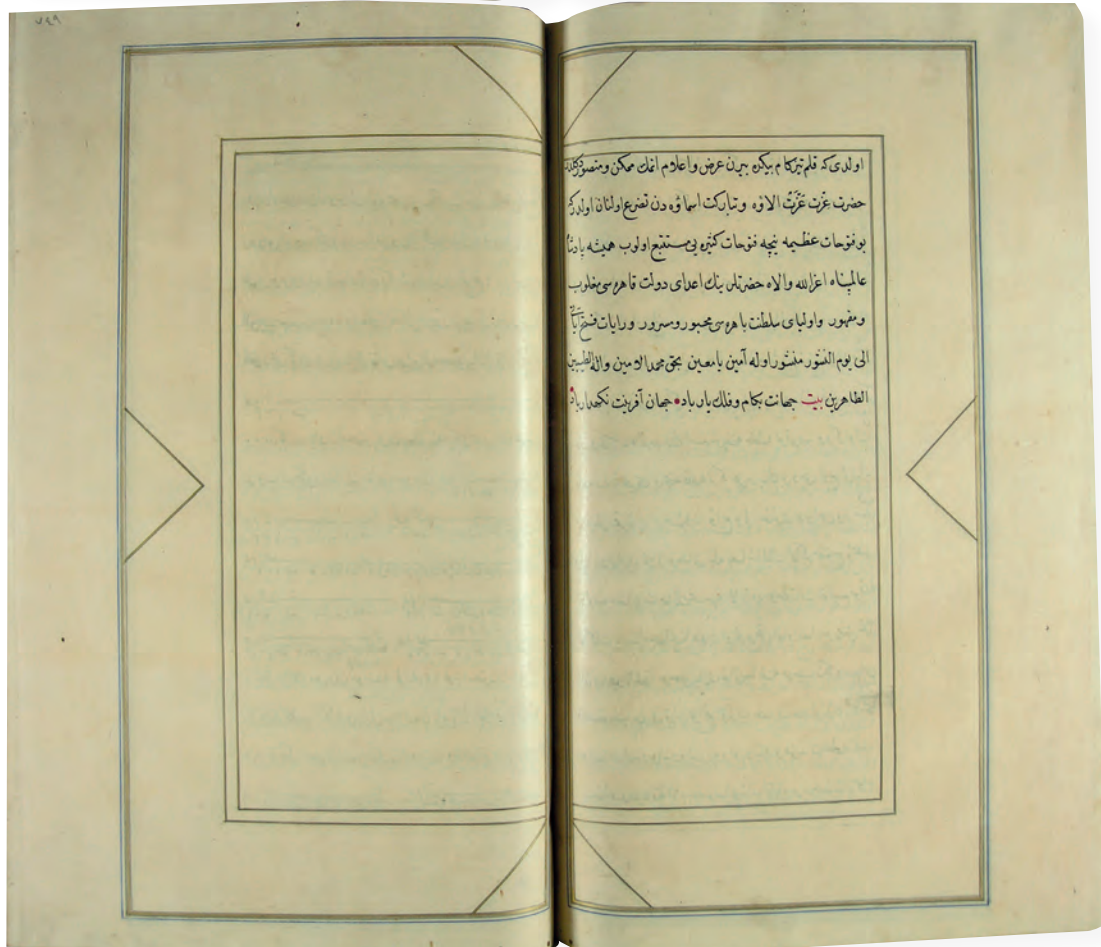 اولدی که قلم تیزکام بیکده بیرن عرض واعلام اتمك ممکن ومتصور دکلدر
حضرت عزت عَزَّتْ الاؤه وتبارکت اسماؤه دن تضرع اولنان اولدر که
بو فتوحات عظیمه نیجه فتوحات کثیره یی مستتبع اولوب همیشه پادشاه
عالمپناه اعزالله والاه حضرتلرینك اعدای دولت قاهره سی مغلوب
ومقهور واولیای سلطنت باهره سی محبور ومسرور ورایات فتح آیاتی
الی یوم النشور منشور اوله آمین یا معین بحق محمد الامین واله الطیبین
الطاهرین بیت جهانت بکام وفلك یار باد • جهان آفرینت نکهدار باد
٧٤٩